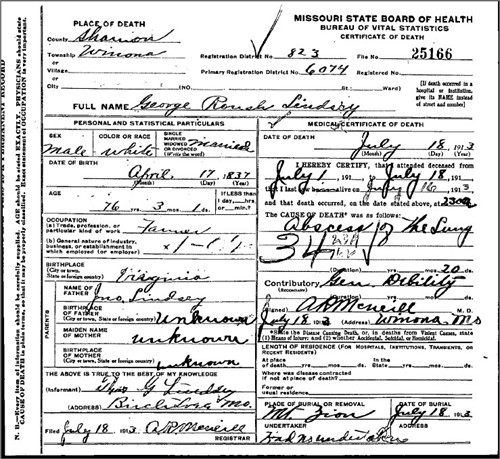 MISSOURI STATE BOARD OF HEALTH
BUREAU OF VITAL STATISTICS
CERTIFICATE OF DEATH
PLACE OF DEATH
County Shannon
Township Winona
or
Village
or
City
Registration District No. 823
File No. 25166
Primary Registration District No. 6074
Registered No.
(No. St. Ward)
[If death occurred in a hospital or institution, give its NAME instead of street and number]
FULL NAME George Roush Lindsey
PERSONAL AND STATISTICAL PARTICULARS
SEX
Male
COLOR OR RACE
white
SINGLE
MARRIED
WIDOWED
OR DIVORCED
(Write the word)
Married
DATE OF BIRTH
April 17 1837
(Month) (Day) (Year)
AGE
76 yrs. 3 mos. 1 ds.
If LESS than
1 day, hrs.
or min.?
OCCUPATION
(a) Trade, profession, or
particular kind of work Farmer
(b) General nature of industry,
business, or establishment in
which employed (or employer)
BIRTHPLACE
(City or town,
State or foreign country) Virginia
PARENTS
NAME OF
FATHER Jno, Lindsey
BIRTHPLACE
OF FATHER
(City or town, State or foreign country) unknown
MAIDEN NAME
OF MOTHER unknown
BIRTHPLACE
OF MOTHER
(City or town, State or foreign country) unknown
THE ABOVE IS TRUE TO THE BEST OF MY KNOWLEDGE
(Informant) Thos G Lindsey
(ADDRESS) Birch Mo.
Filed July 18 1913 A.R. McNeill
REGISTRAR
MEDICAL CERTIFICATE OF DEATH
DATE OF DEATH
July 18, 1913
(Month) (Day) (Year)
I HEREBY CERTIFY, that I attended deceased from
July 1 191 , to July 18, 191
that I last saw alive on July 16 1913
and that death occurred, on the date stated above, at
The CAUSE OF DEATH* was as follows:
Abscess of the Lung
34
(Duration) yrs. mos. 20 ds.
Contributory Gen Debility
(SECONDARY)
(Duration) yrs. mos. ds.
(Signed) A.R. McNeill M. D.
July 18 1913 (Address) Winona Mo
*State the Disease Causing Death, or, in deaths from Violent Causes, state
(1) Means of Injury; and (2) whether Accidental, Suicidal, or Homicidal.
LENGTH OF RESIDENCE (For Hospitals, Institutions, Transients, or
Recent Residents)
At place
of death yrs. mos. ds. In the State yrs. mos. ds.
Where was disease contracted
if not at place of death?
Former or
usual residence
PLACE OF BURIAL OR REMOVAL
Mt. Zion
DATE OF BURIAL
July 18, 1913
UNDERTAKER
Had no undertaker
ADDRESS